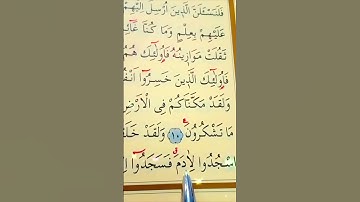 فَلَنَسْـَٔلَنَّ الَّذٖينَ اُرْسِلَ اِلَيْهِمْ
عَلَيْهِمْ بِعِلْمٍ وَمَا كُنَّا
ثَقُلَتْ مَوَازٖينُهُ فَاُو۬لٰٓئِكَ هُمُ
فَاُو۬لٰٓئِكَ الَّذٖينَ خَسِرُٓوا
وَلَقَدْ مَكَّنَّاكُمْ فِي الْاَرْضِ
مَا تَشْكُرُونَ ١٠ وَلَقَدْ
اسْجُدُوا لِاٰدَمَ فَسَجَدُٓوا